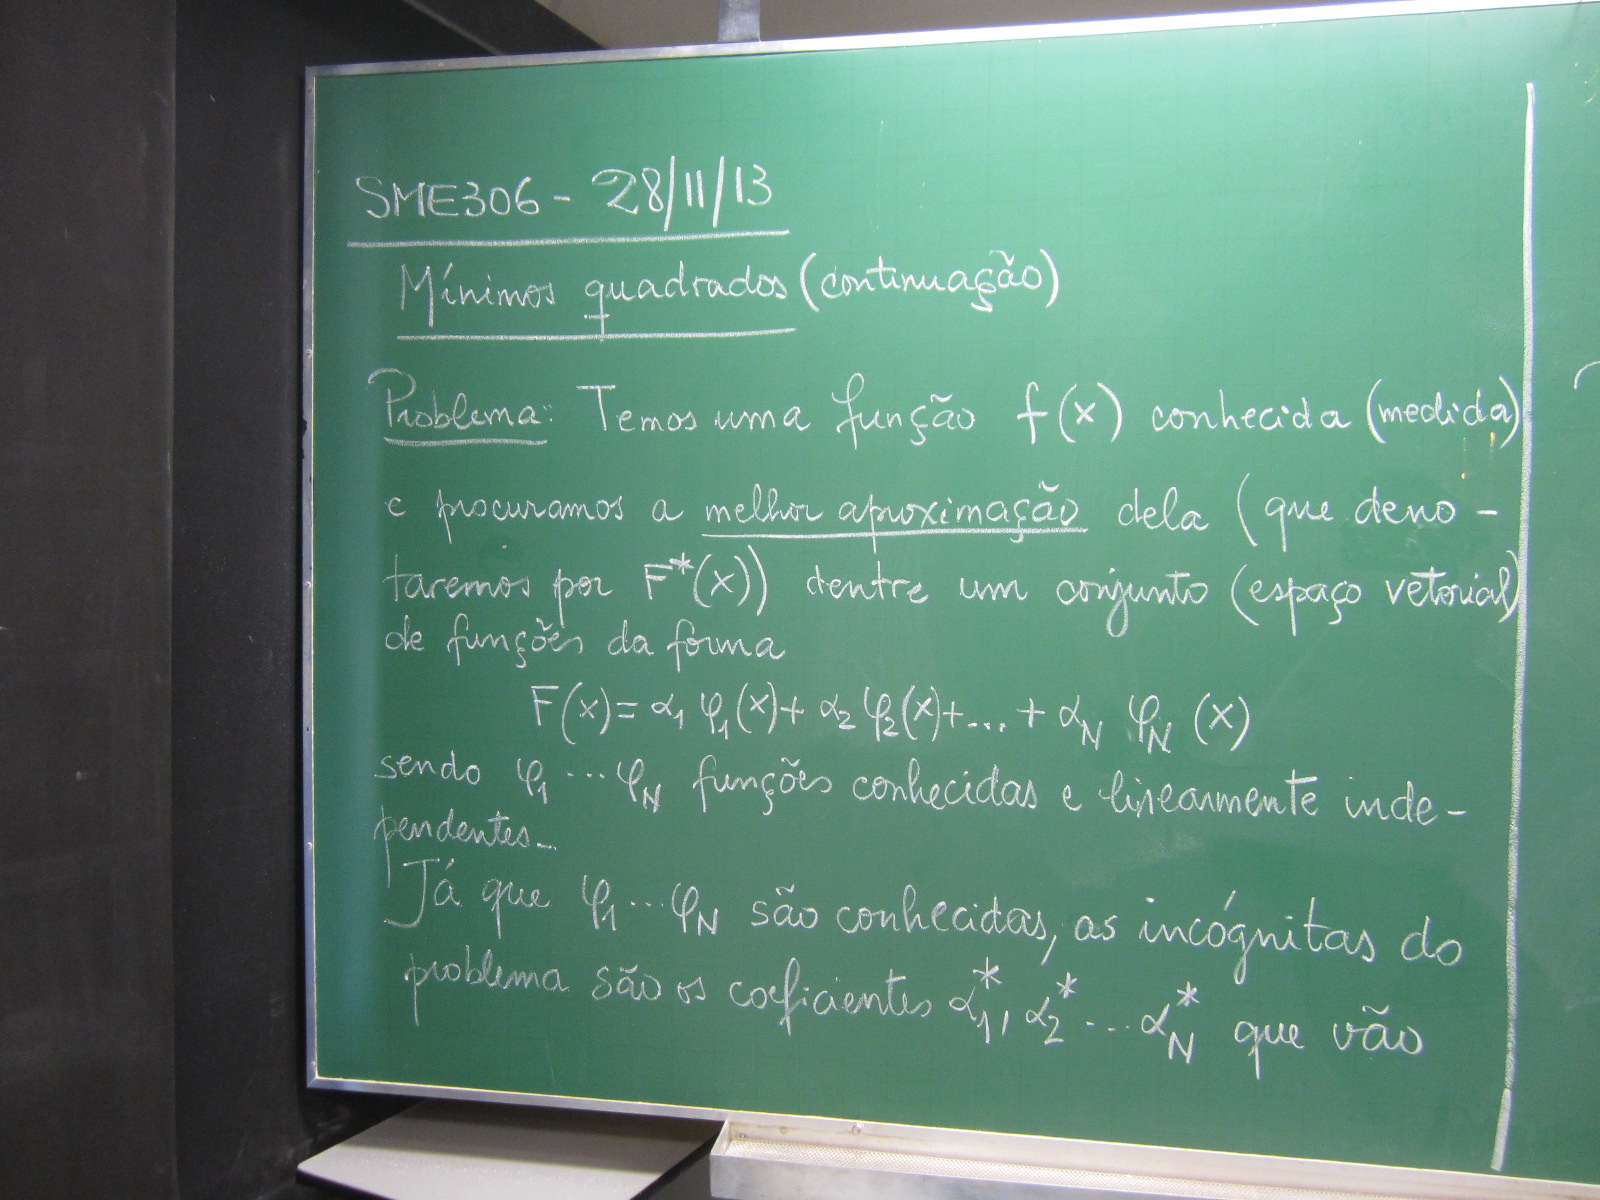 SME306 - 28/11/13
Mínimos quadrados (continuação)
Problema: Temos uma função f(x) conhecida (medida)
e procuramos a melhor aproximação dela (que deno-
taremos por F*(x)) dentre um conjunto (espaço vetorial)
de funções da forma
F(x)= α₁ φ₁(x)+ α₂ φ₂(x)+...+ α_N φ_N (x)
sendo φ₁ ... φ_N funções conhecidas e linearmente inde-
pendentes.
Já que φ₁ ... φ_N são conhecidas, as incógnitas do
problema são os coeficientes α₁*, α₂* ... α_N* que vão